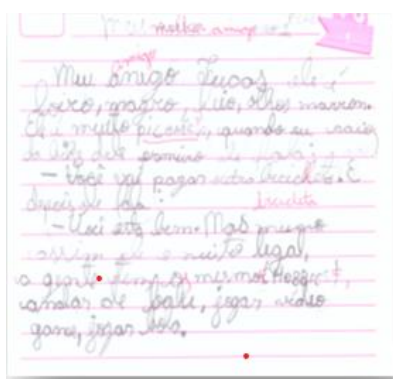 Meu melhor amigo
amigo
Meu amigo Lucas, ele é
loiro, magro, liso, olhos marrom.
Ele é muito, quando eu caio
da bike dele primeiro ele fala:
— Você vai pagar outra bicicleta. E
depois ele fala:
bicicleta
— Você está bem. Mas mesmo
assim ele é muito legal,
a gente
andar de skate, jogar vídeo
game, jogar bola.